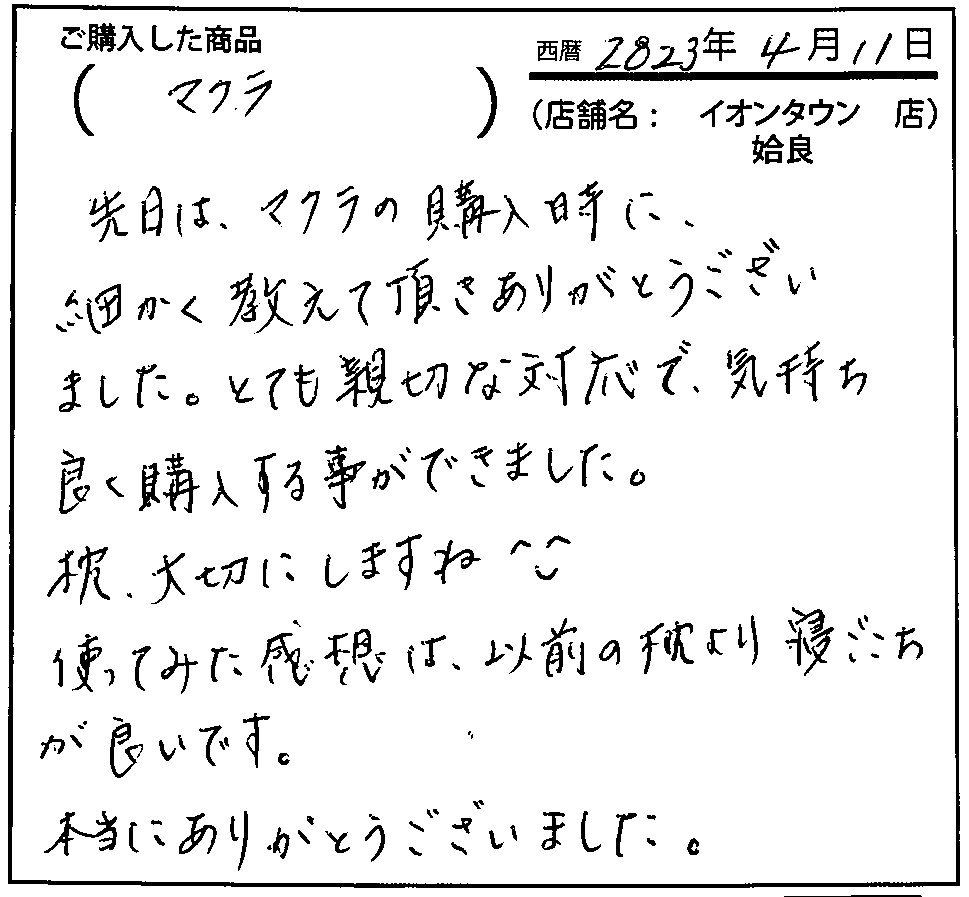 ご購入した商品
(マクラ)
西暦 2023年 4月11日
(店舗名： イオンタウン 店)
姶良
先日は、マクラの購入時に、
細かく教えて頂きありがとうござい
ました。とても親切な対応で、気持ち
良く購入する事ができました。
枕、大切にしますね
使ってみた感想は、以前の枕より寝ごこち
が良いです。
本当にありがとうございました。